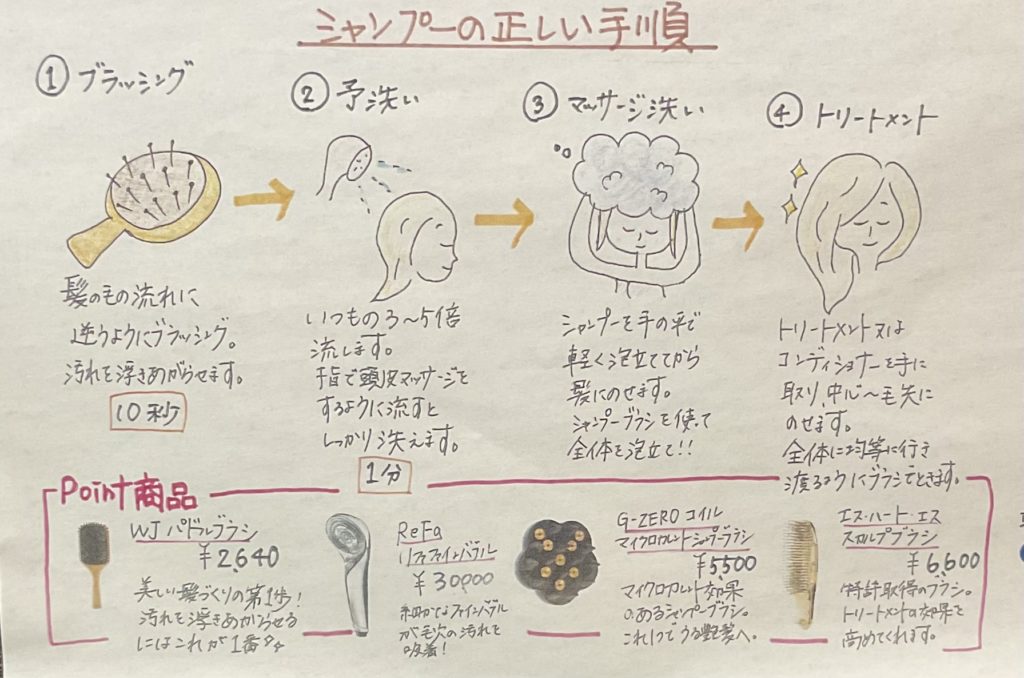 シャンプーの正しい手順
① ブラッシング
髪のもの流れに
逆うようにブラッシング。
汚れを浮きあがらせます。
10秒
② 予洗い
いつもの3〜5倍
流します。
指で頭皮マッサージを
するように流すと
しっかり洗えます。
1分
③ マッサージ洗い
シャンプーを手の平で
軽く泡立ててから
髪にのせます。
シャンプーブラシを使って
全体を泡立て!!
④ トリートメント
トリートメント又は
コンディショナーを手に
取り、中心〜毛先に
のせます。
全体に均等に行き
渡るようにブラシでときます。
Point商品
WJ パドルブラシ
¥2,640
美しい髪づくりの第1歩!
汚れを浮きあがらせる
にはこれが1番
ReFa
リファファインバブル
¥30,000
細かなファインバブル
が毛穴の汚れを
吸着!
G-ZERO コイル
マイクロカレントシャンプーブラシ
¥5,500
マイクロカレント効果
のあるシャンプーブラシ。
これ1つでうる艶髪へ。
エス・ハート・エス
スカルプブラシ
¥6,600
特許取得のブラシ。
トリートメントの効果を
高めてくれます。